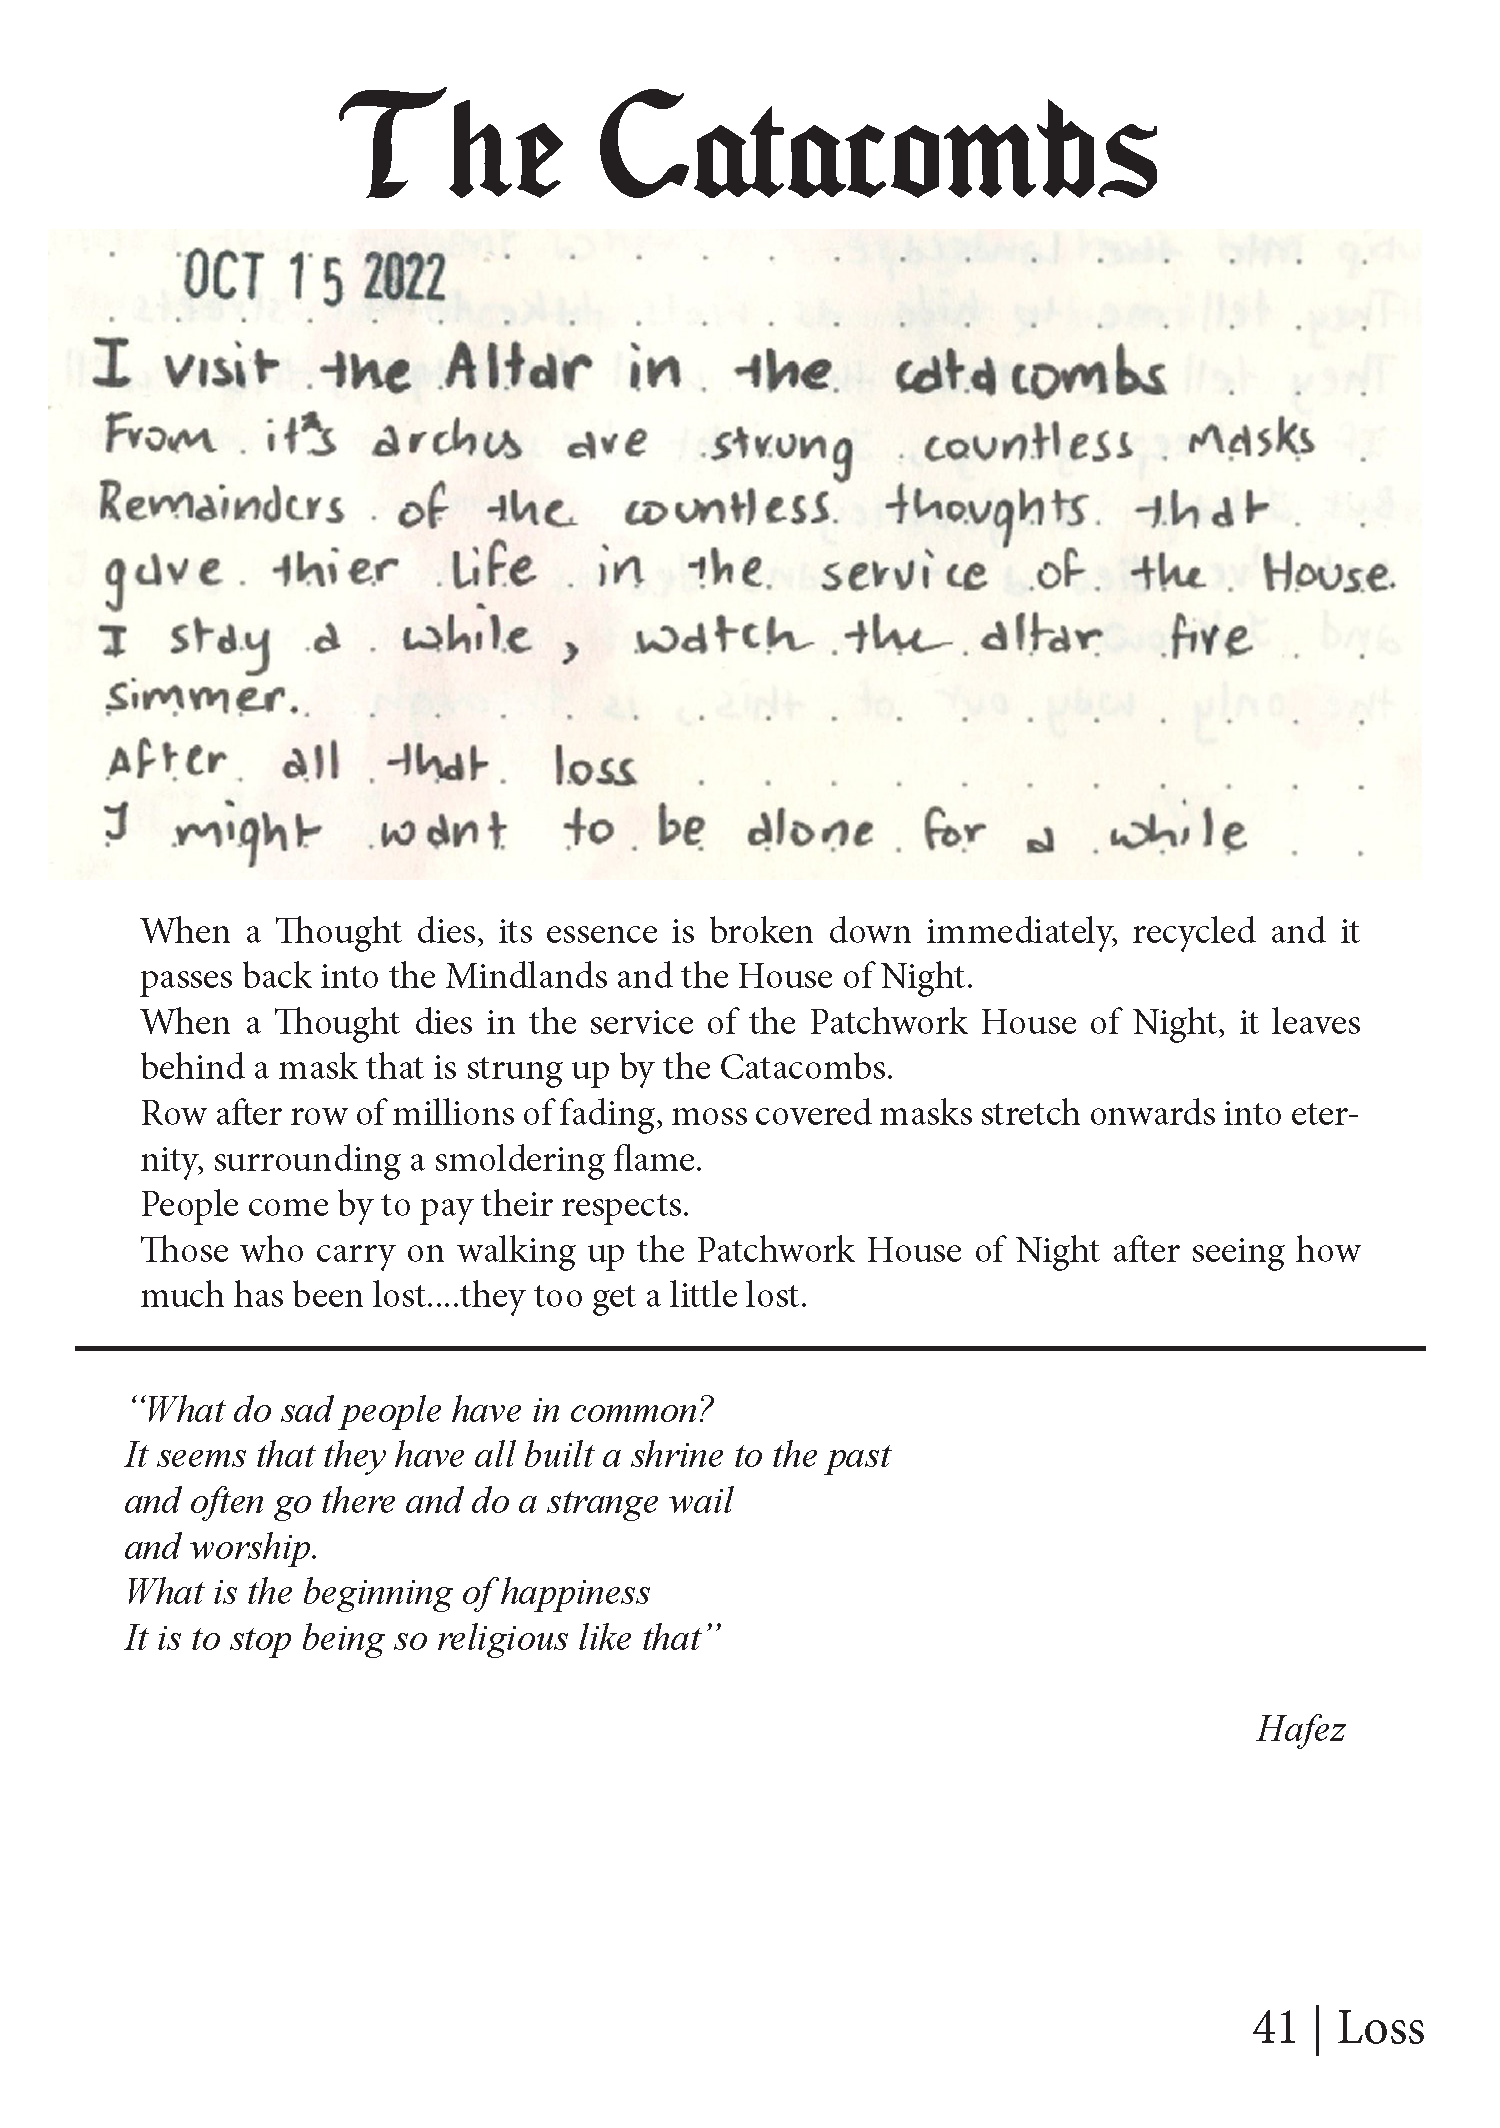 The Catacombs
OCT 15 2022
I visit the Altar in the catacombs
From it's arches are strung countless Masks
Remainders of the countless thoughts that
gave thier life in the service of the House
I stay a while, watch the altar fire
simmer.
After all that loss
I might want to be alone for a while
When a Thought dies, its essence is broken down immediately, recycled and it
passes back into the Mindlands and the House of Night.
When a Thought dies in the service of the Patchwork House of Night, it leaves
behind a mask that is strung up by the Catacombs.
Row after row of millions of fading, moss covered masks stretch onwards into eter-
nity, surrounding a smoldering flame.
People come by to pay their respects.
Those who carry on walking up the Patchwork House of Night after seeing how
much has been lost....they too get a little lost.
“What do sad people have in common?
It seems that they have all built a shrine to the past
and often go there and do a strange wail
and worship.
What is the beginning of happiness
It is to stop being so religious like that”
Hafez
41 | Loss